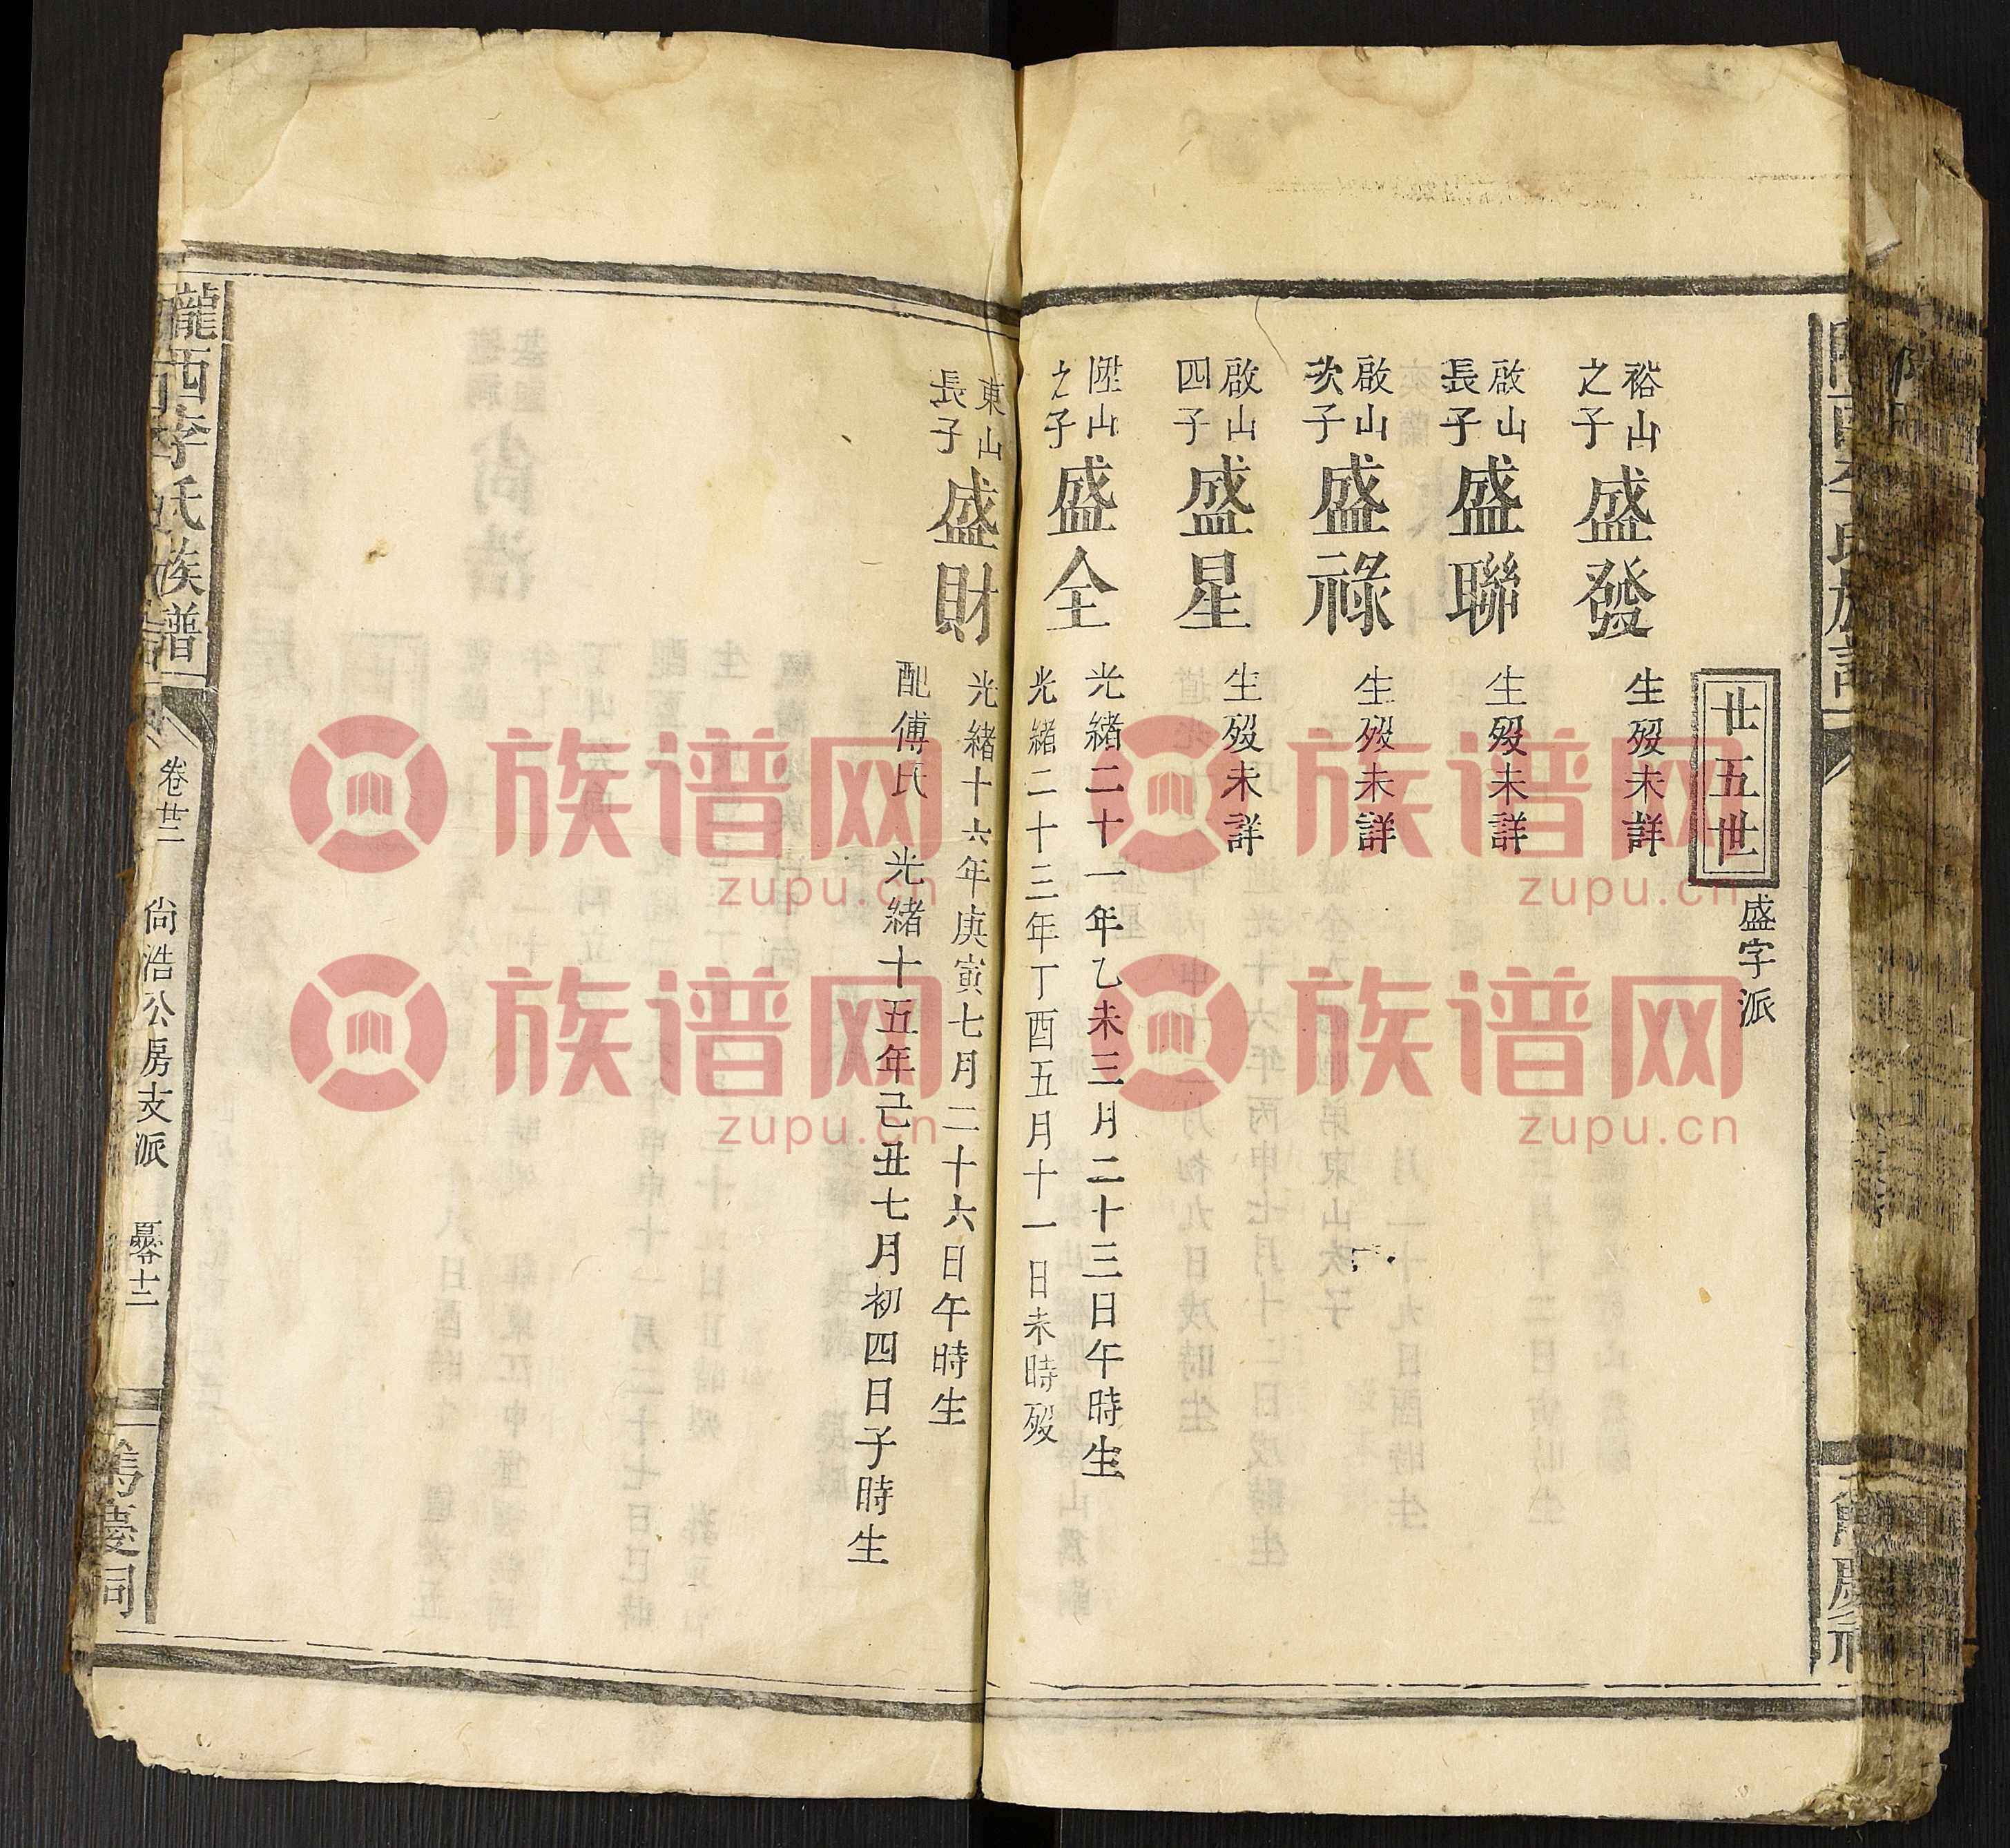 廿五世
盛字派
裕山之子 盛發 生歿未詳
啟山長子 盛聯 生歿未詳
啟山次子 盛祿 生歿未詳
啟山四子 盛星 生歿未詳
陞山之子 盛全 光緒二十一年乙未三月二十三日午時生
光緒二十三年丁酉五月十一日未時歿
東山長子 盛財 光緒十六年庚寅七月二十六日午時生
配傅氏 光緒十五年己丑七月初四日子時生
隴西李氏族譜
卷廿二
尙浩公房支派
族谱网
zupu.cn
族谱网
zupu.cn
族谱网
zupu.cn
族谱网
zupu.cn